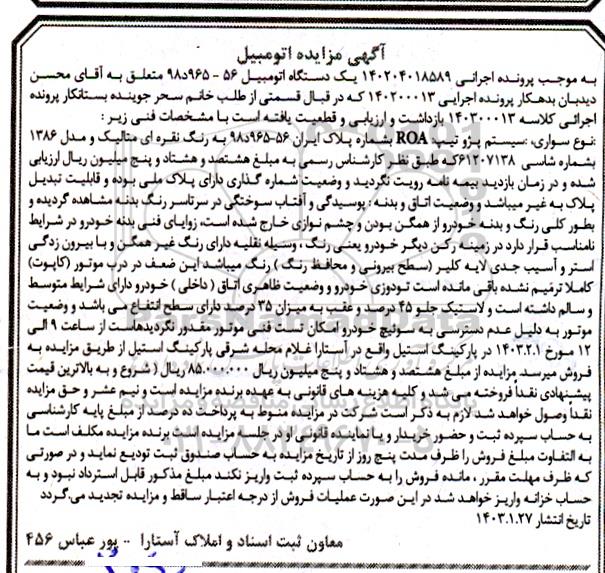 آگهی مزایده اتومبیل
به موجب پرونده اجرائی ۱۴۰۲۰۴۰۱۸۵۸۹ یک دستگاه اتومبیل ۵۶ - ۹۶۵د۹۸ متعلق به آقای محسن
دیدبان بدهکار پرونده اجرایی ۱۴۰۲۰۰۰۱۳ که در قبال قسمتی از طلب خانم سحر جوینده بستانکار پرونده
اجرائی کلاسه ۱۴۰۳۰۰۰۱۳ بازداشت و ارزیابی و قطعیت یافته است با مشخصات فنی زیر :
:نوع سواری، :سیستم پژو تیپ: ROA بشماره پلاک ایران ۵۶-۹۶۵د۹۸ به رنگ نقره ای متالیک و مدل ۱۳۸۶
بشماره شاسی ۶۱۲۰۷۱۳۸که طبق نظر کارشناس رسمی به مبلغ هشتصد و هشتاد و پنج میلیون ریال ارزیابی
شده و در زمان بازدید بیمه نامه رویت نگردید و وضعیت شماره گذاری دارای پلاک ملی بوده و قابلیت تبدیل
پلاک به غیر میباشد و وضعیت اتاق و بدنه : پوسیدگی و آفتاب سوختگی در سرتاسر رنگ بدنه مشاهده گردیده و
بطور کلی رنگ و بدنه خودرو از همگن بودن و چشم نوازی خارج شده است، زوایای فنی بدنه خودرو در شرایط
نامناسب قرار دارد در زمینه رکن دیگر خودرو یعنی رنگ ، وسیله نقلیه دارای رنگ غیر همگن و با بیرون زدگی
استر و آسیب جدی لایه کلیر (سطح بیرونی و محافظ رنگ ) رنگ میباشد این ضعف در درب موتور (کاپوت)
کاملا ترمیم نشده باقی مانده است تودوزی خودرو و وضعیت ظاهری اتاق ( داخلی ) خودرو دارای شرایط متوسط
و سالم داشته است و لاستیک جلو ۴۵ درصد و عقب به میزان ۳۵ درصد دارای سطح انتفاع می باشد و وضعیت
موتور به دلیل عدم دسترسی به سوئیچ خودرو امکان تست فنی موتور مقدور نگردیدهاست از ساعت ۹ الی
۱۲ مورخ ۱۴۰۳.۲.۱ در پارکینگ استیل واقع در آستارا غلام محله شرقی پارکینگ استیل از طریق مزایده به
فروش میرسد مزایده از مبلغ هشتصد و هشتاد و پنج میلیون ریال ۸۵.۰۰۰.۰۰۰ ریال ( شروع و به بالاترین قیمت
پیشنهادی نقداً فروخته می شد و کلیه هزینه های قانونی به عهده برنده مزایده است و نیم عشر و حق مزایده
نقداً وصول خواهد شد لازم به ذکر است شرکت در مزایده منوط به پرداخت ده درصد از مبلغ پایه کارشناسی
به حساب سپرده ثبت و حضور خریدار و یا نماینده قانونی او در جلسه مزایده است برنده مزایده مکلف است ما
به التفاوت مبلغ فروش را ظرف مدت پنج روز از تاریخ مزایده به حساب صندوق ثبت تودیع نماید و در صورتی
که ظرف مهلت مقرر ، مانده فروش را به حساب سپرده ثبت واریز نکند مبلغ مذکور قابل استرداد نبود و به
حساب خزانه واریز خواهد شد در این صورت عملیات فروش از درجه اعتبار ساقط و مزایده تجدید می‌گردد
تاریخ انتشار ۱۴۰۳.۱.۲۷
معاون ثبت اسناد و املاک آستارا - پور عباس ۴۵۶